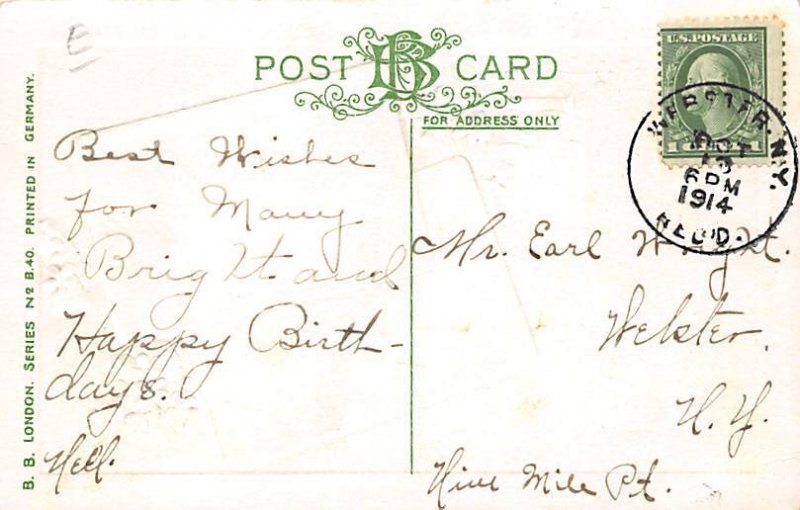 E
POST BB CARD
FOR ADDRESS ONLY
U.S. POSTAGE
1 1
WEBSTER. N.Y.
OCT
13
6 PM
1914
REC'D.
B. B. LONDON. SERIES Nº B.40. PRINTED IN GERMANY.
Best Wishes
for Many
Bright and
Happy Birth-
days.
Nell.
Mr. Earl Wright.
Webster,
N. Y.
Nine Mile Pt.